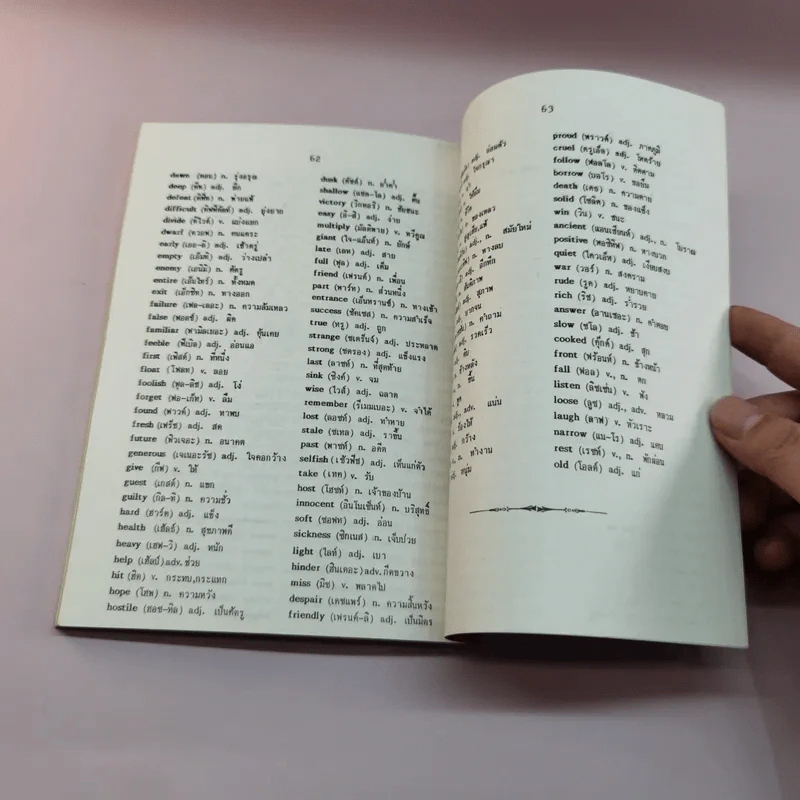 62
dawn (ดอน) n. รุ่งอรุณ
deep (ดีพ) adj. ลึก
defeat (ดิฟีท) n. พ่ายแพ้
difficult (ดิฟฟิคัลท์) adj. ยุ่งยาก
divide (ดิไวด์) v. แบ่งแยก
dwarf (ดวอฟ) n. คนแคระ
early (เออ-ลิ) adj. เช้าตรู่
empty (เอ็มทิ) adj. ว่างเปล่า
enemy (เอนิมิ) n. ศัตรู
entire (เอ็นไทร์) n. ทั้งหมด
exit (เอ็กซิท) n. ทางออก
failure (เฟล-เลอะ) n. ความล้มเหลว
false (ฟอลซ์) adj. ผิด
familiar (ฟามิลเยอะ) adj. คุ้นเคย
feeble (ฟีเบิล) adj. อ่อนแอ
first (เฟิสท์) n. ที่หนึ่ง
float (โฟลท) v. ลอย
foolish (ฟูล-ลิช) adj. โง่
forget (ฟอ-เก็ท) v. ลืม
found (ฟาวด์) adj. หาพบ
fresh (เฟร็ช) adj. สด
future (ฟิวเจอะ) n. อนาคต
generous (เจเนอะรัช) adj. ใจคอกว้าง
give (กิฟ) v. ให้
guest (เกสต์) n. แขก
guilty (กิล-ทิ) n. ความชั่ว
hard (ฮาร์ด) adj. แข็ง
health (เฮ้ลธ์) n. สุขภาพดี
heavy (เฮฟ-วิ) adj. หนัก
help (เฮ้ลป์) adv. ช่วย
hit (ฮิต) v. กระทบ,กระแทก
hope (โฮพ) n. ความหวัง
hostile (ฮอซ-ทิล) adj. เป็นศัตรู
dusk (ดัซค์) n. ย่ำค่ำ
shallow (แชล-โล) adj. ตื้น
victory (วิกทอริ) n. ชัยชนะ
easy (อี-ซิ) adj. ง่าย
multiply (มัลติพาย) v. ทวีคูณ
giant (ไจ-แอ้นท์) n. ยักษ์
late (เลท) adj. สาย
full (ฟูล) adj. เต็ม
friend (เฟรนด์) n. เพื่อน
part (พาร์ท) n. ส่วนหนึ่ง
entrance (เอ็นทรานซ์) n. ทางเข้า
success (ซัคเซส) n. ความสำเร็จ
true (ทรู) adj. ถูก
strange (ซเตร็นจ์) adj. ประหลาด
strong (ซตรอง) adj. แข็งแรง
last (ลาซท์) n. ที่สุดท้าย
sink (ซิงค์) v. จม
wise (ไวส์) adj. ฉลาด
remember (รีเมมเบอะ) v. จำได้
lost (ลอซท์) adj. ทำหาย
stale (ซเทล) adj. ราขึ้น
past (พาซท์) n. อดีต
selfish (เซ้วฟิช) adj. เห็นแก่ตัว
take (เทค) v. รับ
host (โฮซท์) n. เจ้าของบ้าน
innocent (อินโนเซ็นท์) n. บริสุทธิ์
soft (ซอฟท) adj. อ่อน
sickness (ซิกเนส) n. เจ็บป่วย
light (ไลท์) adj. เบา
hinder (ฮินเดอะ) adv. กีดขวาง
miss (มิซ) v. พลาดไป
despair (เดซแพร์) n. ความสิ้นหวัง
friendly (เฟรนด์-ลิ) adj. เป็นมิตร
63
adj. ถ่อมตัว
สมัยใหม่
สุภาพ
adj. รวดเร็ว
adv. แน่น
กว้าง
n. ทำงาน
adj. หนุ่ม
proud (พราวด์) adj. ภาคภูมิ
cruel (ครูเอ็ล) adj. โหดร้าย
follow (ฟอลโล) v. ติดตาม
borrow (บอโร) v. ขอยืม
death (เดธ) n. ความตาย
solid (โซลิด) n. ของแข็ง
win (วิน) v. ชนะ
ancient (แอนเชียนท์) adj., n. โบราณ
positive (พอซิทิฟ) n. ทางบวก
quiet (ไควเอ็ท) adj. เงียบสงบ
war (วอร์) n. สงคราม
rude (รูด) adj. หยาบคาย
rich (ริช) adj. ร่ำรวย
answer (อานเซอะ) n. คำตอบ
slow (ซโล) adj. ช้า
cooked (คุ๊กด์) adj. สุก
front (ฟร้อนท์) n. ข้างหน้า
fall (ฟอล) v., n. ตก
listen (ลิซเซ่น) v. ฟัง
loose (ลูซ) adj., adv. หลวม
laugh (ลาฟ) v. หัวเราะ
narrow (แน-โร) adj. แคบ
rest (เรซท์) v., n. พักผ่อน
old (โอลด์) adj. แก่